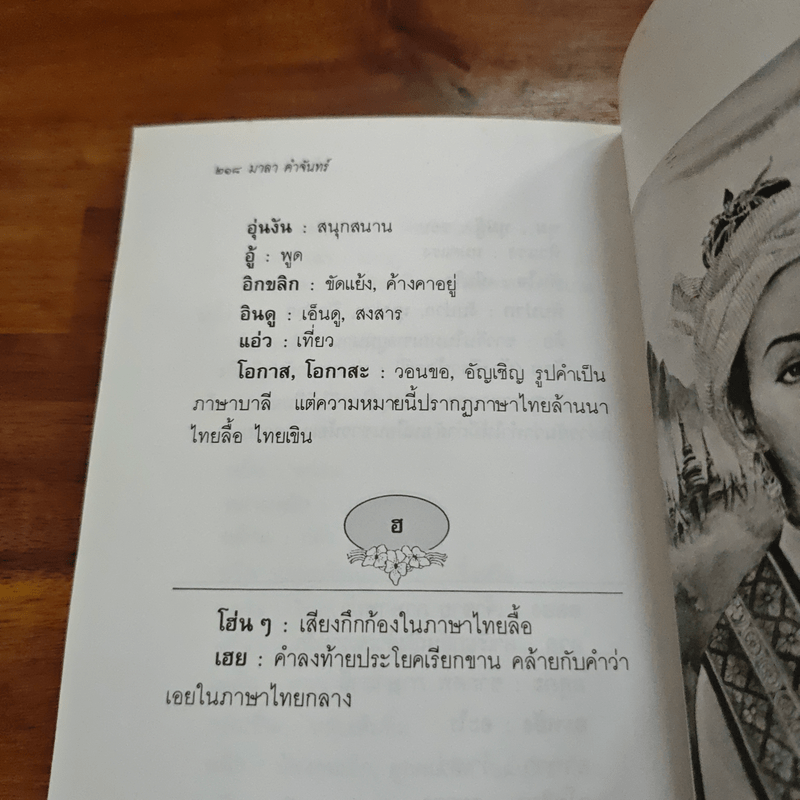 ๒๑๘ มาลา คำจันทร์
อุ่นงัน : สนุกสนาน
อู้ : พูด
อิกขลิก : ขัดแย้ง, ค้างคาอยู่
อินดู : เอ็นดู, สงสาร
แอ่ว : เที่ยว
โอกาส, โอกาสะ : วอนขอ, อัญเชิญ รูปคำเป็น
ภาษาบาลี แต่ความหมายนี้ปรากฏภาษาไทยล้านนา
ไทยลื้อ ไทยเขิน
ฮ
โฮ่น ๆ : เสียงกึกก้องในภาษาไทยลื้อ
เฮย : คำลงท้ายประโยคเรียกขาน คล้ายกับคำว่า
เอยในภาษาไทยกลาง